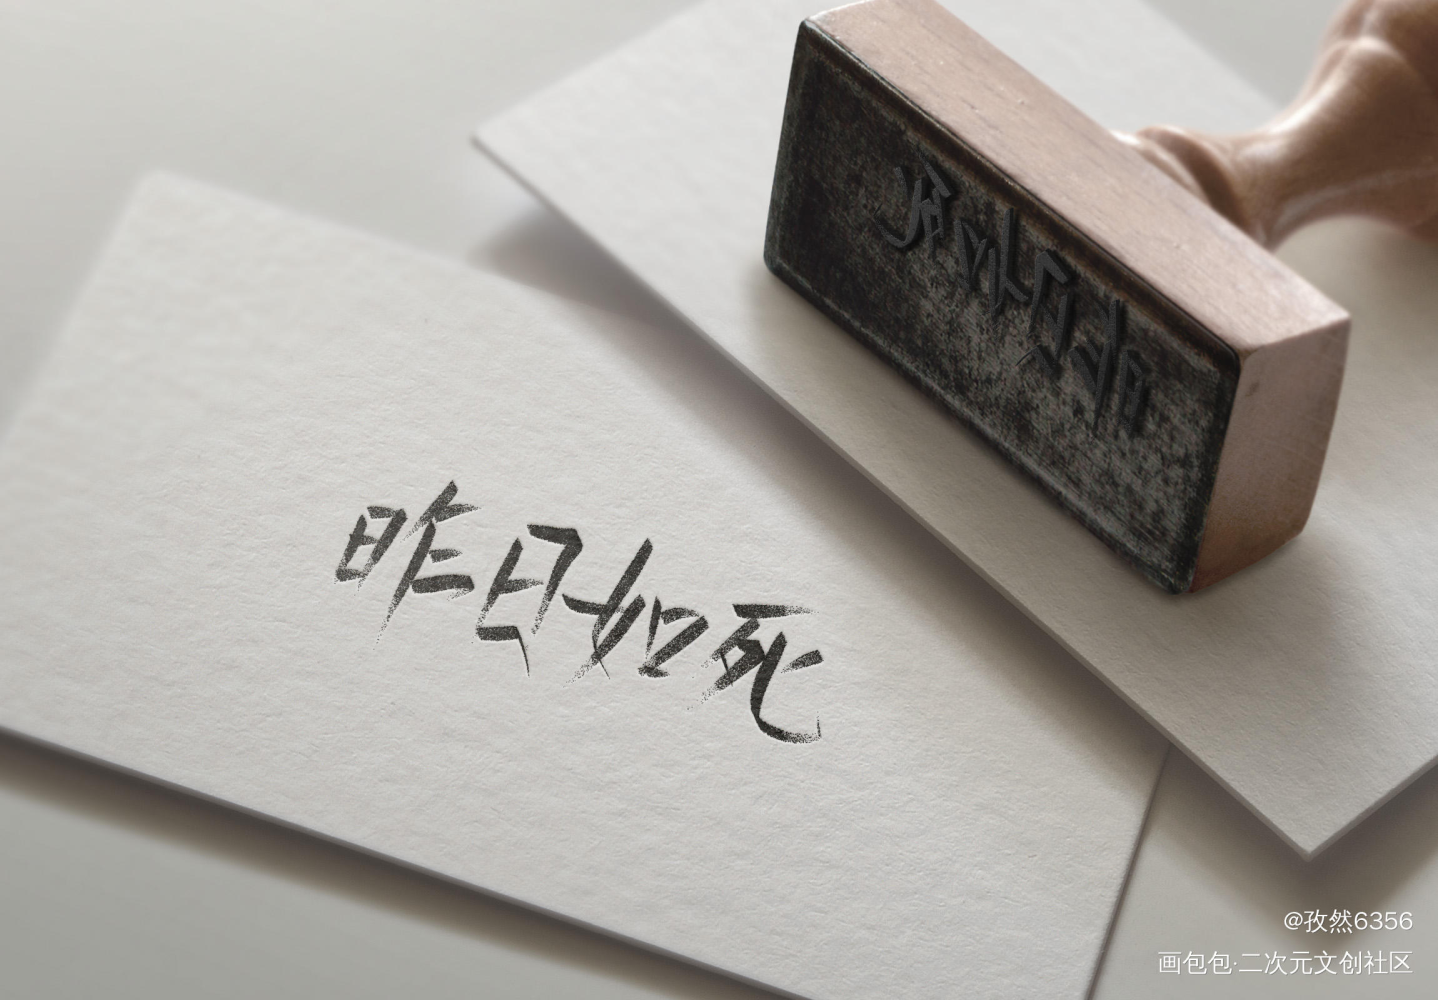 昨日如死
@孜然6356
画包包·二次元文创社区